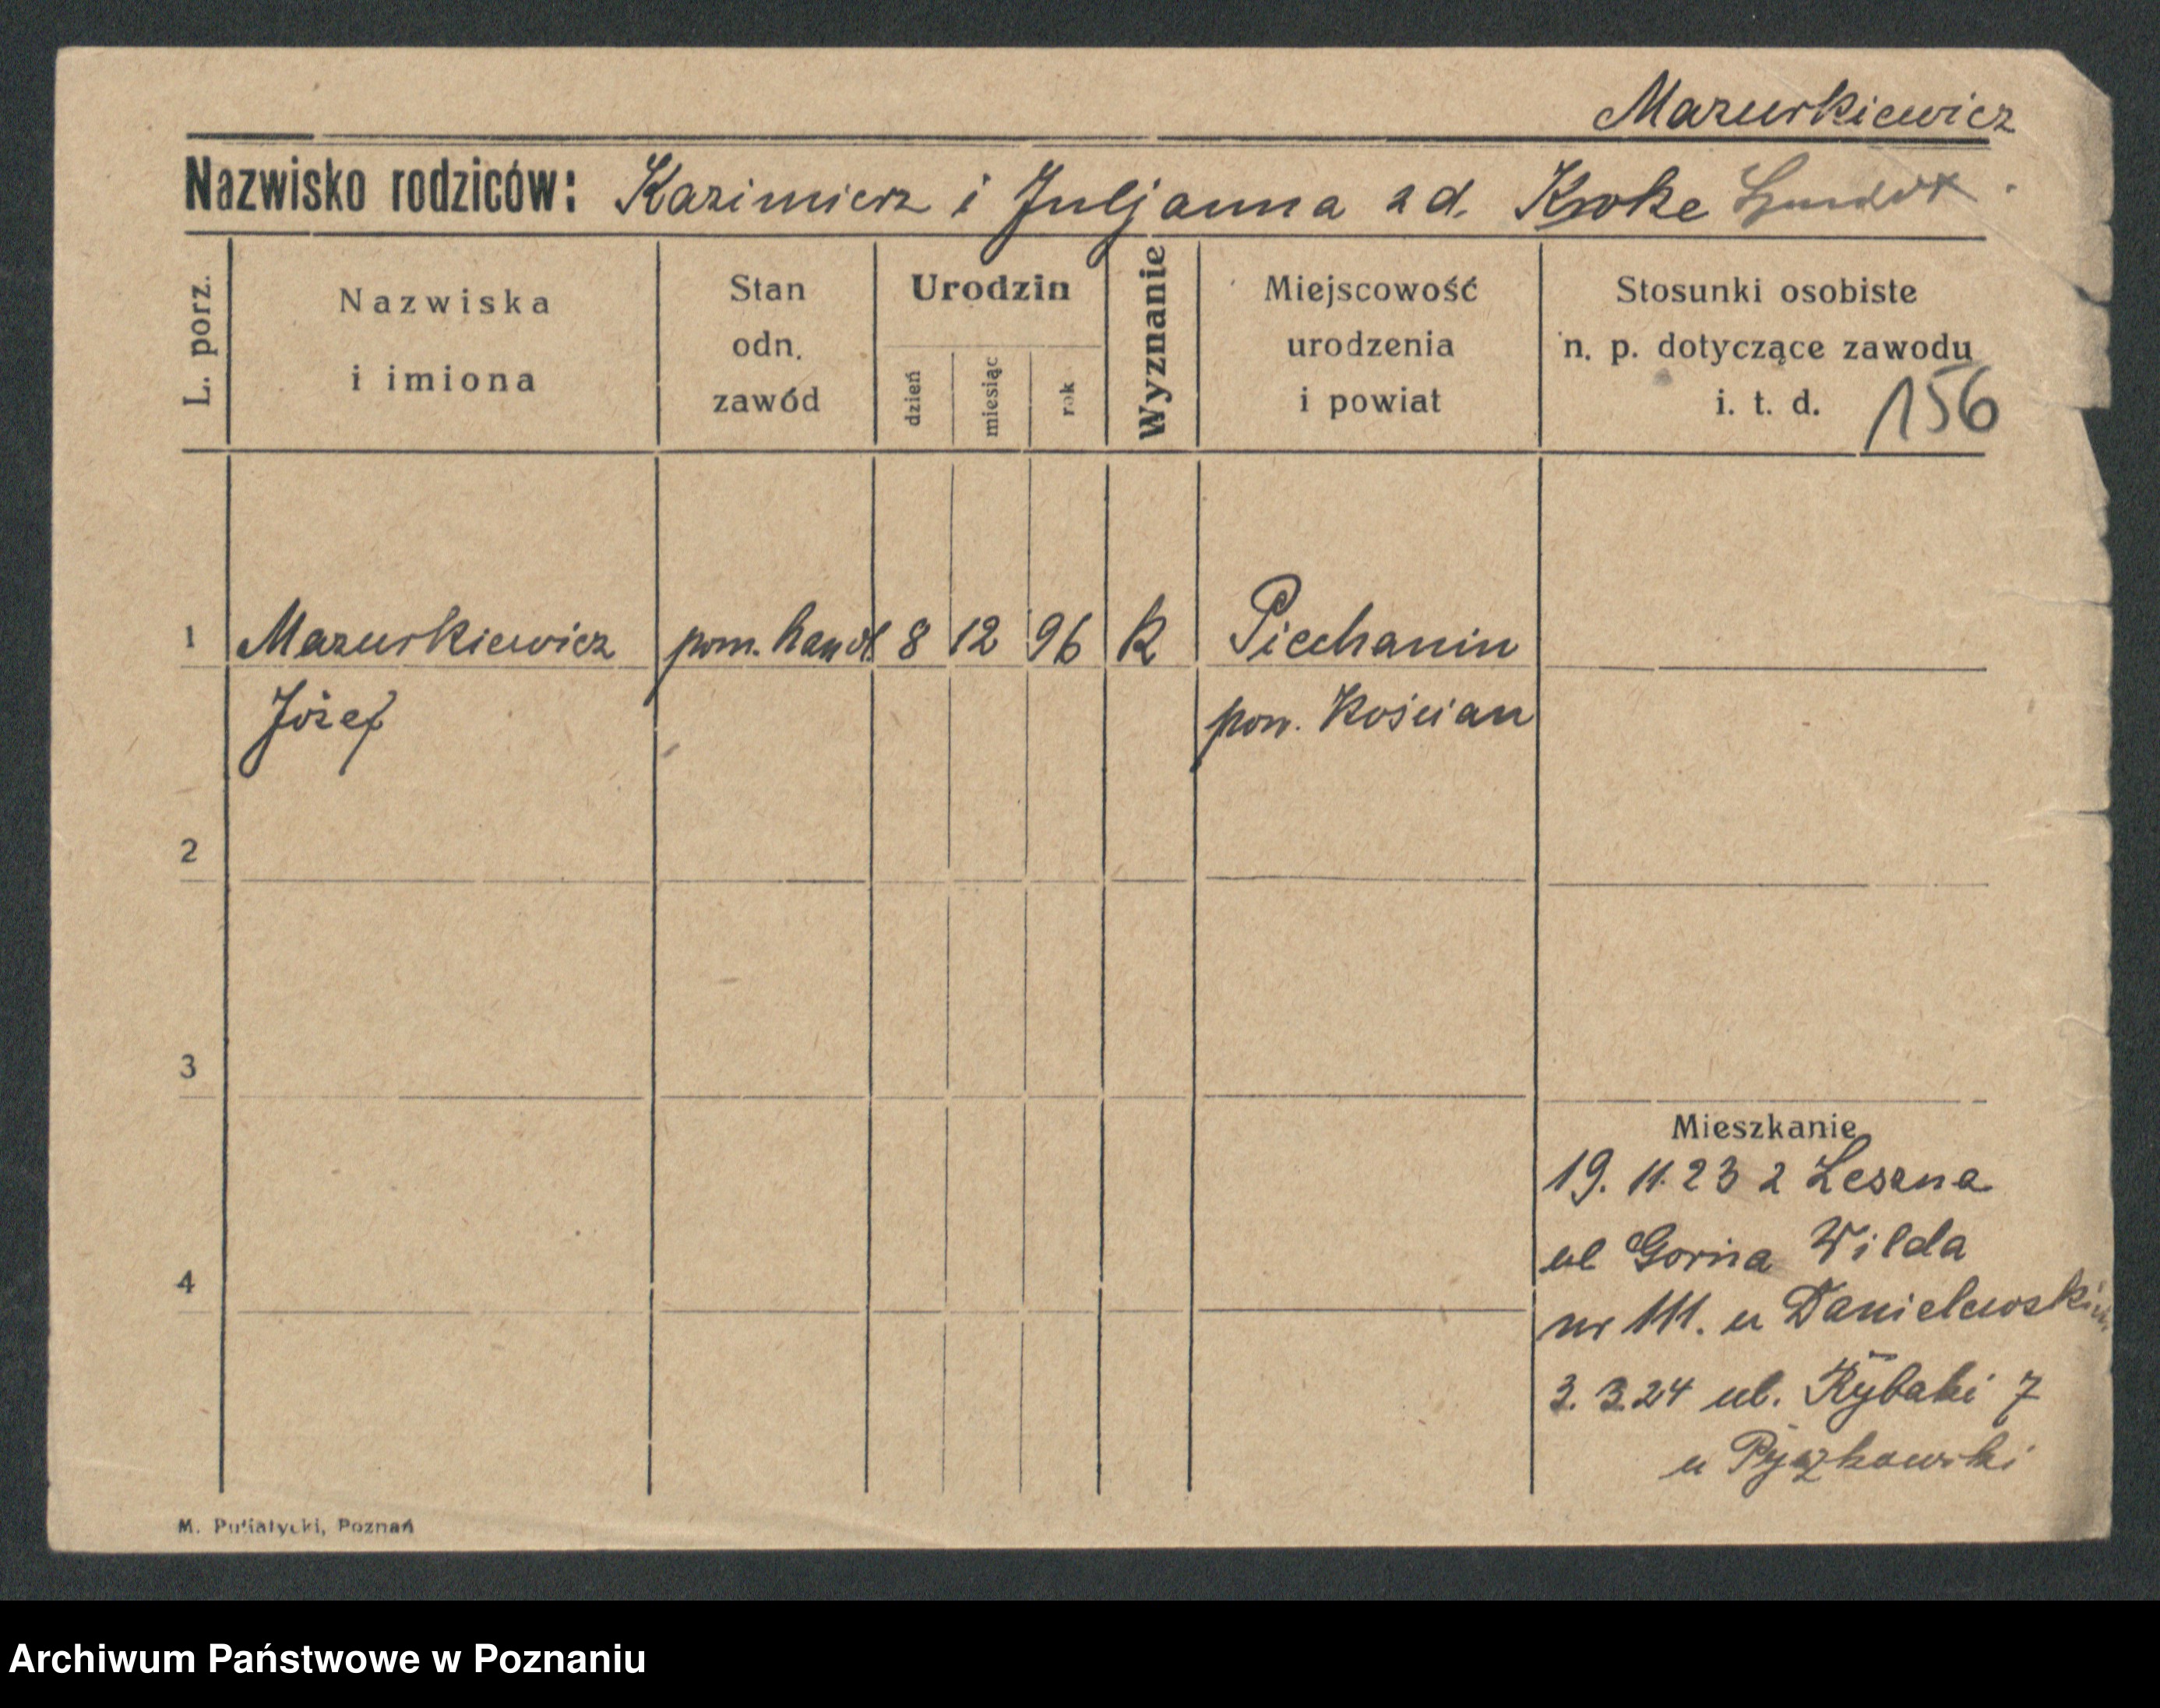 Mazurkiewicz
Nazwisko rodziców: Kazimierz i Juljanna zd. Kroke
L. porz.
Nazwiska
i imiona
Stan
odn.
zawód
Urodzin
dzień
miesiąc
rok
Wyznanie
Miejscowość
urodzenia
i powiat
Stosunki osobiste
n. p. dotyczące zawodu
i. t. d.
156
1 Mazurkiewicz pom. handl 8 12 96 K Piechanin
Józef pow. Kościan
2
3
Mieszkanie
19. 11. 23 z Leszna
ul Gorna Wilda
4
nr 111. u Danielewskim
3. 3.24 ul. Rybaki 7
u Pyszkowski
M. Putiatycki, Poznań
Archiwum Państwowe w Poznaniu